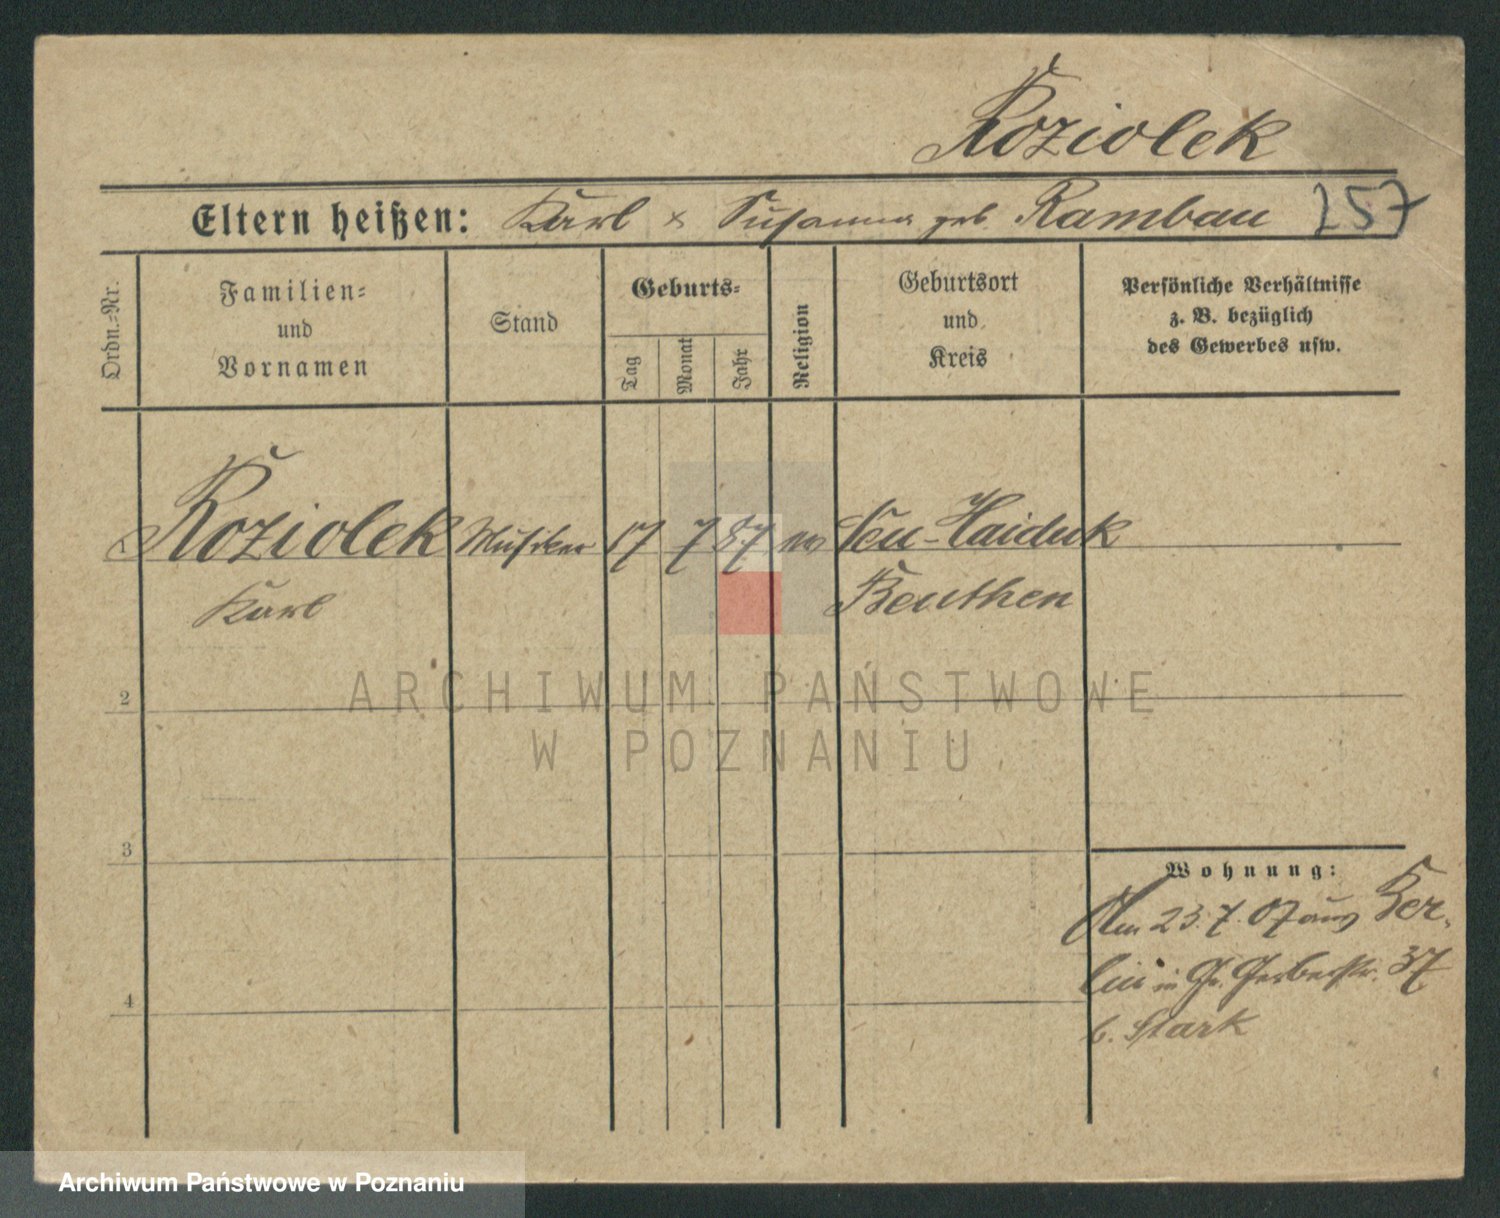 Koziolek
Eltern heißen: Karl & Susanna geb. Rambau 257
Ordn.-Nr.
Familien-
und
Vornamen
Stand
Geburts-
Tag
Monat
Jahr
Religion
Geburtsort
und
Kreis
Persönliche Verhältnisse
z. B. bezüglich
des Gewerbes usw.
1 Koziolek Musiker 17 7 87 Neu-Haiduk
Karl Beuthen
2
3
4
Wohnung:
Am 23.7.07 aus Ber-
lin in Gr. Gerberstr. 37
b. Stark
ARCHIWUM PAŃSTWOWE
W POZNANIU
Archiwum Państwowe w Poznaniu